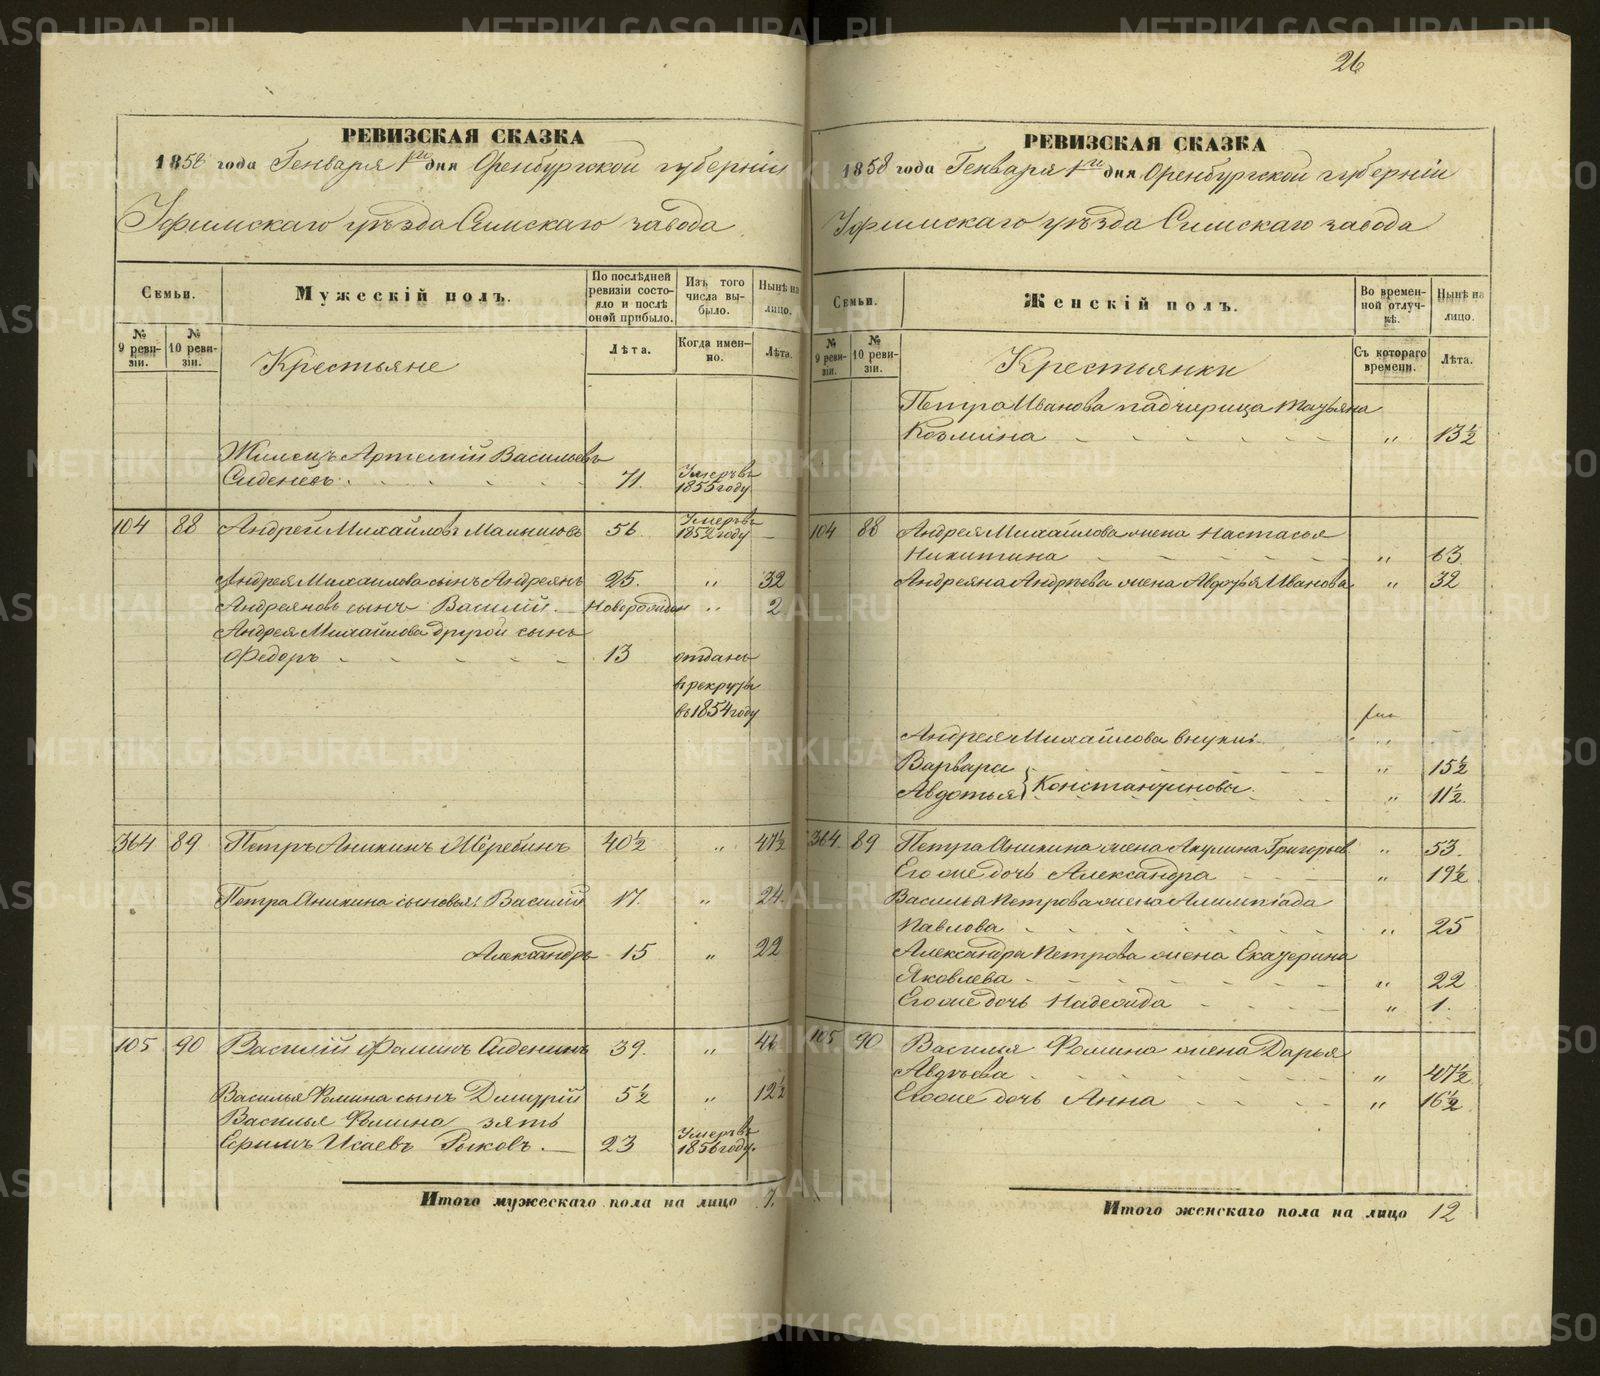 26
РЕВИЗСКАЯ СКАЗКА
1858 года Генваря 1го дня Оренбургской губерніи
Уфимскаго уѣзда Симскаго завода
Семьи.
Мужескій полъ.
По послѣдней ревизіи состояло и послѣ оной прибыло.
Изъ того числа выбыло.
Нынѣ на лицо.
№ 9 ревизіи.
№ 10 ревизіи.
Крестьяне
Лѣта.
Когда именно.
Лѣта.
Жилецъ Артемій Васильевъ
Сиденевъ 71. Умеръ въ 1855 году
104 88 Андрей Михайловъ 56 Умеръ въ 1852 году —
Андрея Михайлова сынъ Андреянъ 25. „ 32
Андреяновъ сынъ Василій — Новорожден „ 2
Андрея Михайлова другой сынъ
Федоръ 13 отданъ
в рекруты
въ 1854 году
364 89 Петръ Аникинъ Жеребинъ 40½ „ 47½
Петра Аникина сыновья: Василій 17. „ 24.
Александръ 15 „ 22
105 90 Василій Фоминъ Сиденинъ 39. „ 46
Василья Фомина сынъ Дмитрій 5½ „ 12½
Василья Фомина зять
Ефимъ Исаевъ Рыковъ. — 23 Умеръ въ 1856 году.
Итого мужескаго пола на лицо 7.
РЕВИЗСКАЯ СКАЗКА
1858 года Генваря 1го дня Оренбургской губерніи
Уфимскаго уѣзда Симскаго завода
Семьи.
Женскій полъ.
Во временной отлучкѣ.
Нынѣ на лицо.
№ 9 ревизіи.
№ 10 ревизіи.
Крестьянки
Съ котораго времени.
Лѣта.
Петра Иванова падчерица Татьяна
Козмина „ 13½
104 88 Андрея Михайлова жена Настасья
Никитина „ 63
Андреяна Андрѣева жена Авдотья Иванова „ 32
Андрея Михайлова внуки
Варвара „ 15½
Авдотья } Константиновы „ 11½.
364 89 Петра Аникина жена Акулина Григорьев „ 53.
Его же дочь Александра „ 19½
Василья Петрова жена Алимпіада
Павлова „ 25
Александра Петрова жена Екатерина
Яковлева „ 22
Его же дочь Надежда „ 1.
105 90 Василья Фомина жена Дарья
Авдѣева „ 47½
Его же дочь Анна „ 16½
Итого женскаго пола на лицо 12
METRIKI.GASO-URAL.RU